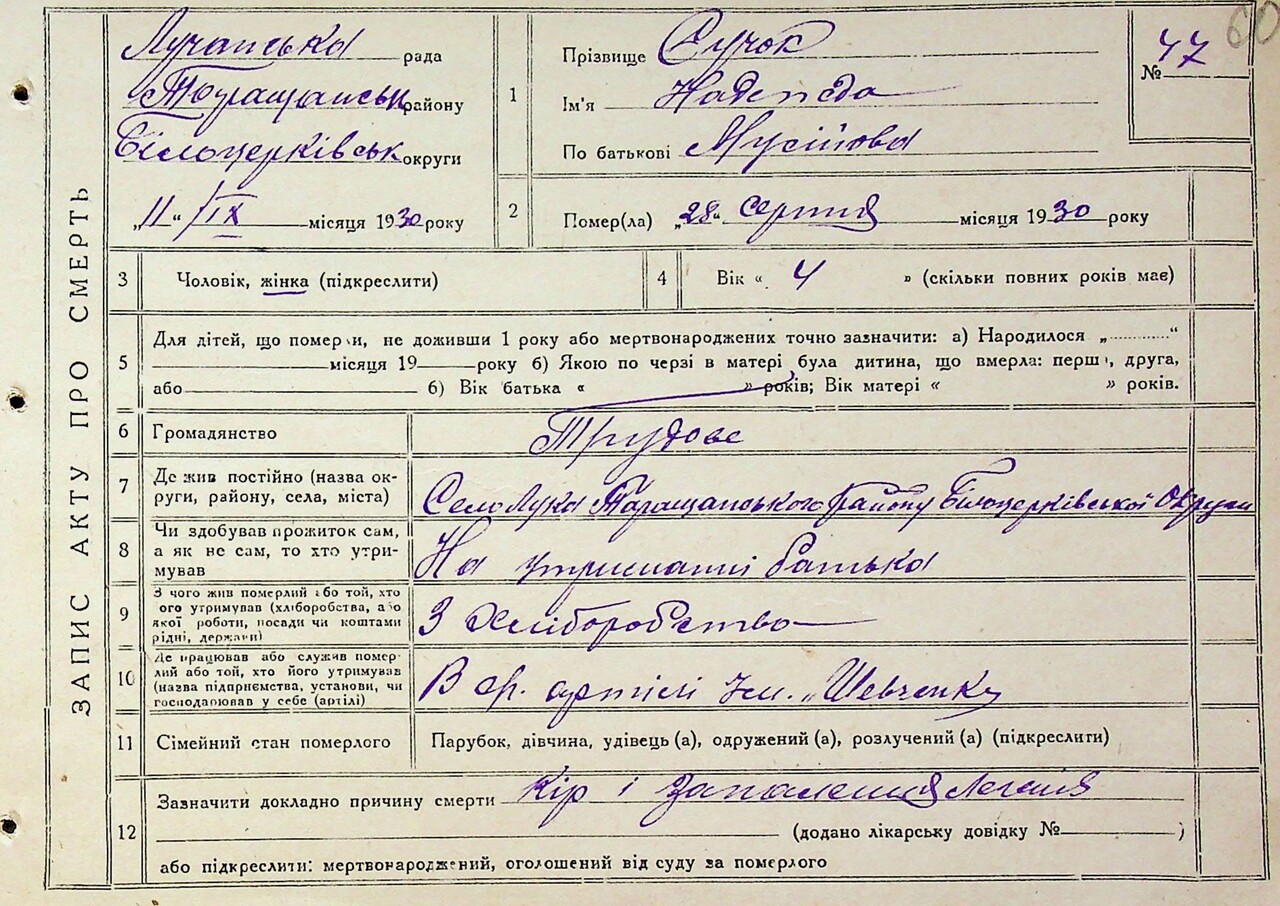 60
ЗАПИС АКТУ ПРО СМЕРТЬ
Лучанська рада
Таращанськ району
Білоцерківськ округи
„11“ / IX місяця 1930 року
1
Прізвище Сучок
Ім'я Надежда
По батькові Мусійова
№ 47
2
Помер(ла) „28“ серпня місяця 1930 року
3
Чоловік, жінка (підкреслити)
4
Вік « 4 » (скільки повних років має)
5
Для дітей, що померли, не доживши 1 року або мертвонароджених точно зазначити: а) Народилося „ “
місяця 19 року б) Якою по черзі в матері була дитина, що вмерла: перша, друга,
або б) Вік батька « » років; Вік матері « » років.
6
Громадянство
Трудове
7
Де жив постійно (назва ок-
руги, району, села, міста)
Село Лука Таращанського району Білоцерківської Округи
8
Чи здобував прожиток сам,
а як не сам, то хто утри-
мував
На утриманні батька
9
З чого жив померлий або той, хто
його утримував (хліборобства, або
якої роботи, посади чи коштами
рідні, держави)
З Хліборобство
10
Де працював або служив помер-
лий або той, хто його утримував
(назва підприємства, установи, чи
господарював у себе (артілі)
В ср. артілі ім. „Шевченку
11
Сімейний стан померлого
Парубок, дівчина, удівець (а), одружений (а), розлучений (а) (підкреслити)
12
Зазначити докладно причину смерти Кір і запалення Легенів
(додано лікарську довідку № )
або підкреслити: мертвонароджений, оголошений від суду за померлого